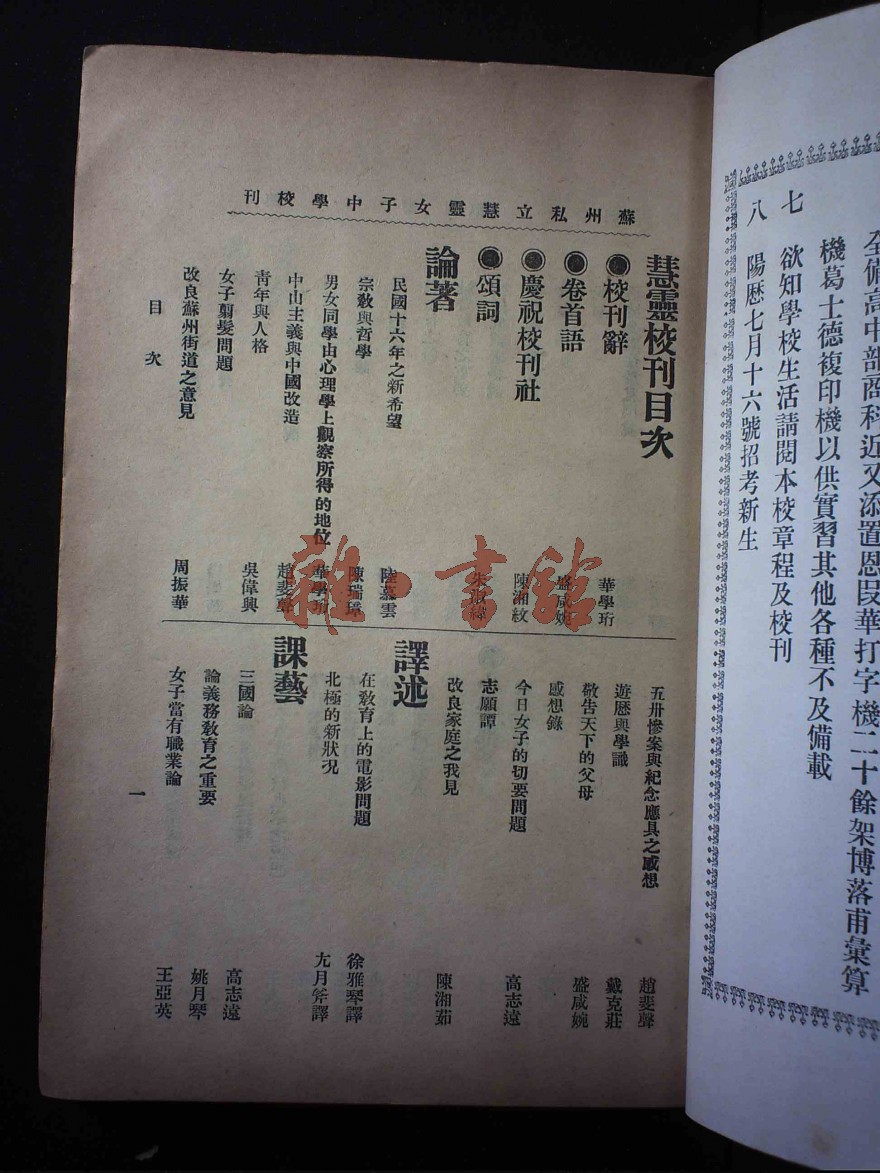 全備高中部商科近又添置恩叚華打字機二十餘架博落甫彙算
機葛士德複印機以供實習其他各種不及備載
七 欲知學校生活請閱本校章程及校刊
八 陽歷七月十六號招考新生
蘇州私立慧靈女子中學校刊
慧靈校刊目次
◉校刊辭 華學珩
◉卷首語 盛咸婉
◉慶祝校刊社 陳湘紋
◉頌詞
論著
民國十六年之新希望 陸慕雲
宗教與哲學 陳瑞璋
男女同學由心理學上觀察所得的地位 華學珩
中山主義與中國改造 趙斐聲
青年與人格 吳偉興
女子翦髮問題
改良蘇州街道之意見 周振華
五卅慘案與紀念應具之感想 趙斐聲
遊歷與學識 戴克莊
敬告天下的父母 盛咸婉
感想錄
今日女子的切要問題 高志遠
志願譚
改良家庭之我見 陳湘茹
譯述
在教育上的電影問題 徐雅琴譯
北極的新狀况 尢月斧譯
課藝
三國論 高志遠
論義務教育之重要 姚月琴
女子當有職業論 王亞英
目次
一
雜·書館